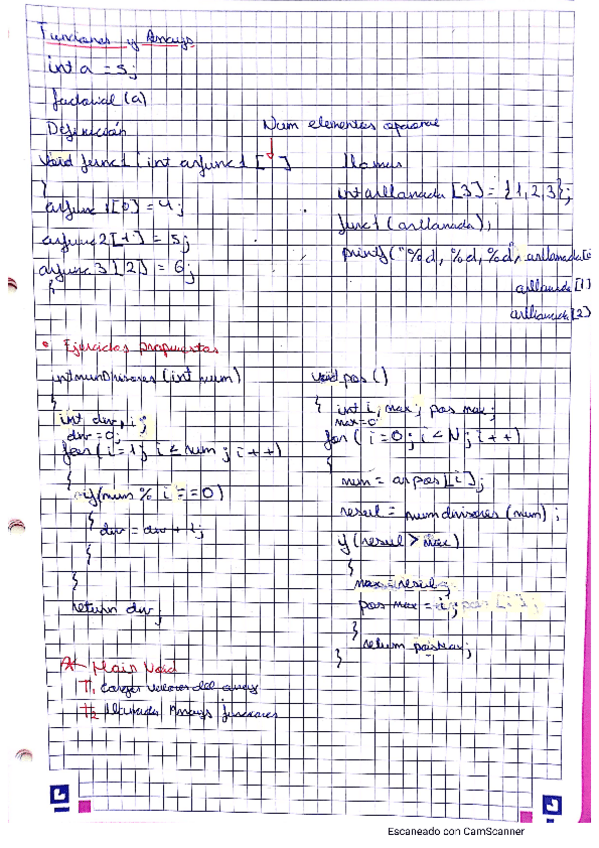 Funciones y Arrays
int a = 5;
factorial (a)
Definición
Num elementos opcional
void func1 (int arfunc1 [ ]
{
arfunc1[0] = 4;
arfunc2[1] = 5;
arfunc3[2] = 6;
}
llamar
int arllamada [3] = {1,2,3};
func1 (arllamada);
printf("%d, %d, %d", arllamada[0]
arllamada [1]
arllamada [2]
• Ejercicios propuestos
int numDivisores (int num)
{
int div, i;
div = 0;
for (i=1; i ≤ num; i++)
{
if (num % i == 0)
{ div = div + 1;
}
}
return div;
void pos ()
{ int i, max, pos max;
max=0
for (i=0; i < N; i++)
{
num = arpos[i];
resul = numdivisores (num);
if (resul > max)
{
max=resul;
pos max = i;
}
return posmax;
}
Main Void
T1 cargar valores del array
T2 llamada Arrays funciones
Escaneado con CamScanner